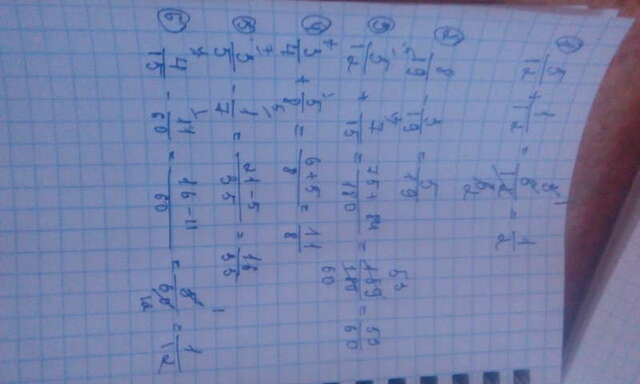 ① 5/12 + 1/12 = 6/12 = 1/2
② 8/19 - 3/19 = 5/19
③ 5/12 + 7/15 = 75+84/180 = 159/180 = 53/60
④ 3/4 + 5/8 = 6+5/8 = 11/8
⑤ 3/5 - 1/7 = 21-5/35 = 16/35
⑥ 4/15 - 11/60 = 16-11/60 = 5/60 = 1/12